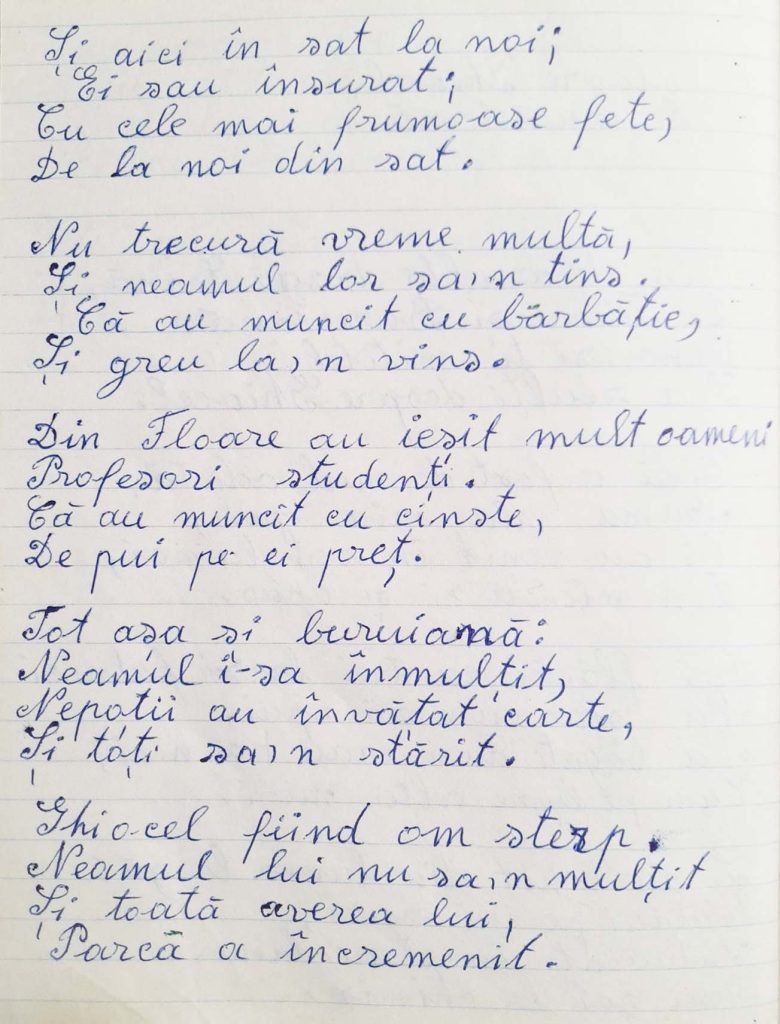 Și aici în sat la noi;
Ei sau însurat;
Cu cele mai frumoase fete,
De la noi din sat.
Nu trecură vreme multă,
Și neamul lor sa,n tins.
Că au muncit cu bărbăție,
Și greu la,n vins.
Din Floare au ieșit mult oameni
Profesori studenți.
Că au muncit cu cinste,
De pui pe ei preț.
Tot asa si buruiană:
Neamul i-sa înmulțit,
Nepotii au învățat carte,
Și toți sa,n stărit.
Ghiocel fiind om sterp.
Neamul lui nu sa,n mulțit
Și toată averea lui,
Parcă a încremenit.